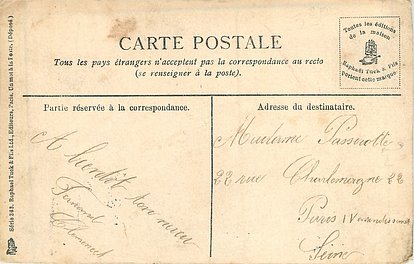 Série 348. Raphael Tuck & Fils Ltd., Editeurs, Paris.
(Déposé.)
CARTE POSTALE
Tous les pays étrangers n'acceptent pas la correspondance au recto
(se renseigner à la poste).
Toutes les éditions
de la maison
Raphaël Tuck & Fils
portent cette marque.
Partie réservée à la correspondance.
A bientôt ton neveu
Fernand
Adresse du destinataire.
Madame
22 rue Charlemagne 22
Paris
Seine